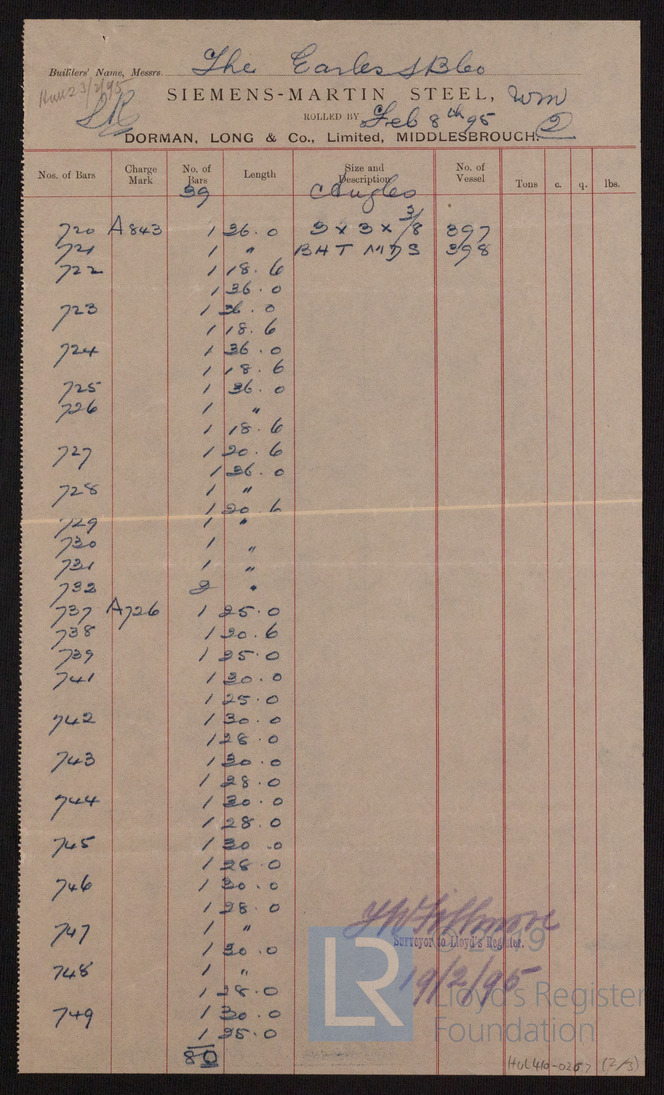 Builders' Name, Messrs. The Earles S B Co
Hull 23/2/95
SIEMENS-MARTIN STEEL, WM
ROLLED BY Feb 8th 95
DORMAN, LONG & Co., Limited, MIDDLESBROUGH. 2
Nos. of Bars Charge Mark No. of Bars Length Size and Description No. of Vessel Tons c. q. lbs.
39 Angles
720 A843 1 36.0 3 x 3 x 3/8 397
721 1 " 398
722 1 18.6
1 36.0
723 1 36.0
1 18.6
724 1 36.0
1 18.6
725 1 36.0
726 1 "
1 18.6
727 1 20.6
1 36.0
728 1 "
1 20.6
729 1 "
730 1 "
731 1 "
732 2 "
737 A726 1 25.0
738 1 20.6
739 1 25.0
741 1 30.0
1 25.0
742 1 30.0
1 28.0
743 1 30.0
1 28.0
744 1 30.0
1 28.0
745 1 30.0
1 28.0
746 1 30.0
1 28.0
747 1 "
1 30.0
748 1 "
1 28.0
749 1 30.0
1 25.0
80
J W Fillmore
Surveyor to Lloyd's Register.
19/2/95
LR
Lloyd's Register
Foundation
HUL410-0267 (2/3)